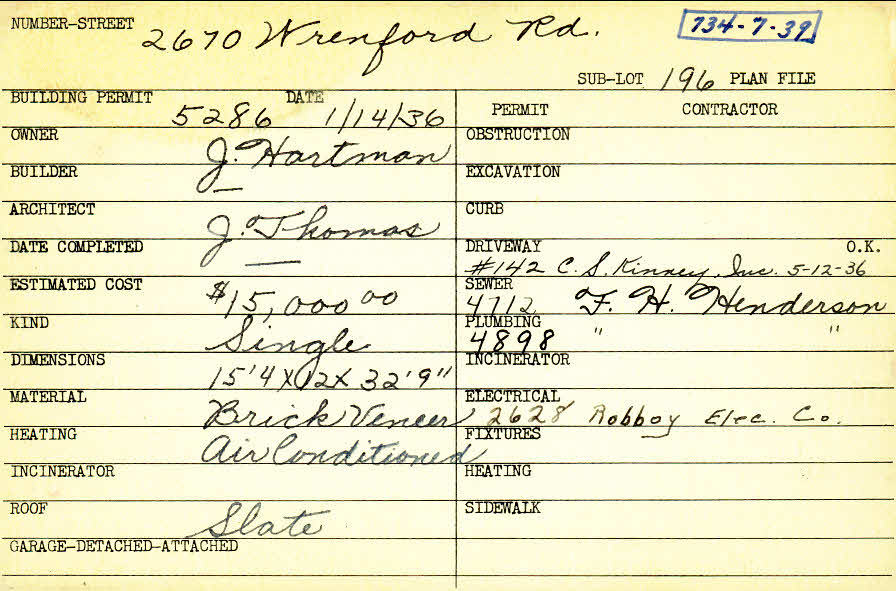 NUMBER-STREET 2670 Wrenford Rd. 734-7-39
SUB-LOT 196 PLAN FILE
BUILDING PERMIT 5286 DATE 1/14/36
PERMIT CONTRACTOR
OWNER J. Hartman
OBSTRUCTION
BUILDER —
EXCAVATION
ARCHITECT J. Thomas
CURB
DATE COMPLETED —
DRIVEWAY O.K.
#142 C. S. Kinney, Inc. 5-12-36
ESTIMATED COST $15,000 00
SEWER 4712 F. H. Henderson
KIND Single
PLUMBING 4898 " "
DIMENSIONS 15'4 X 12 X 32'9"
INCINERATOR
MATERIAL Brick Veneer
ELECTRICAL 2628 Robboy Elec. Co.
HEATING Air Conditioned
FIXTURES
INCINERATOR
HEATING
ROOF Slate
SIDEWALK
GARAGE-DETACHED-ATTACHED